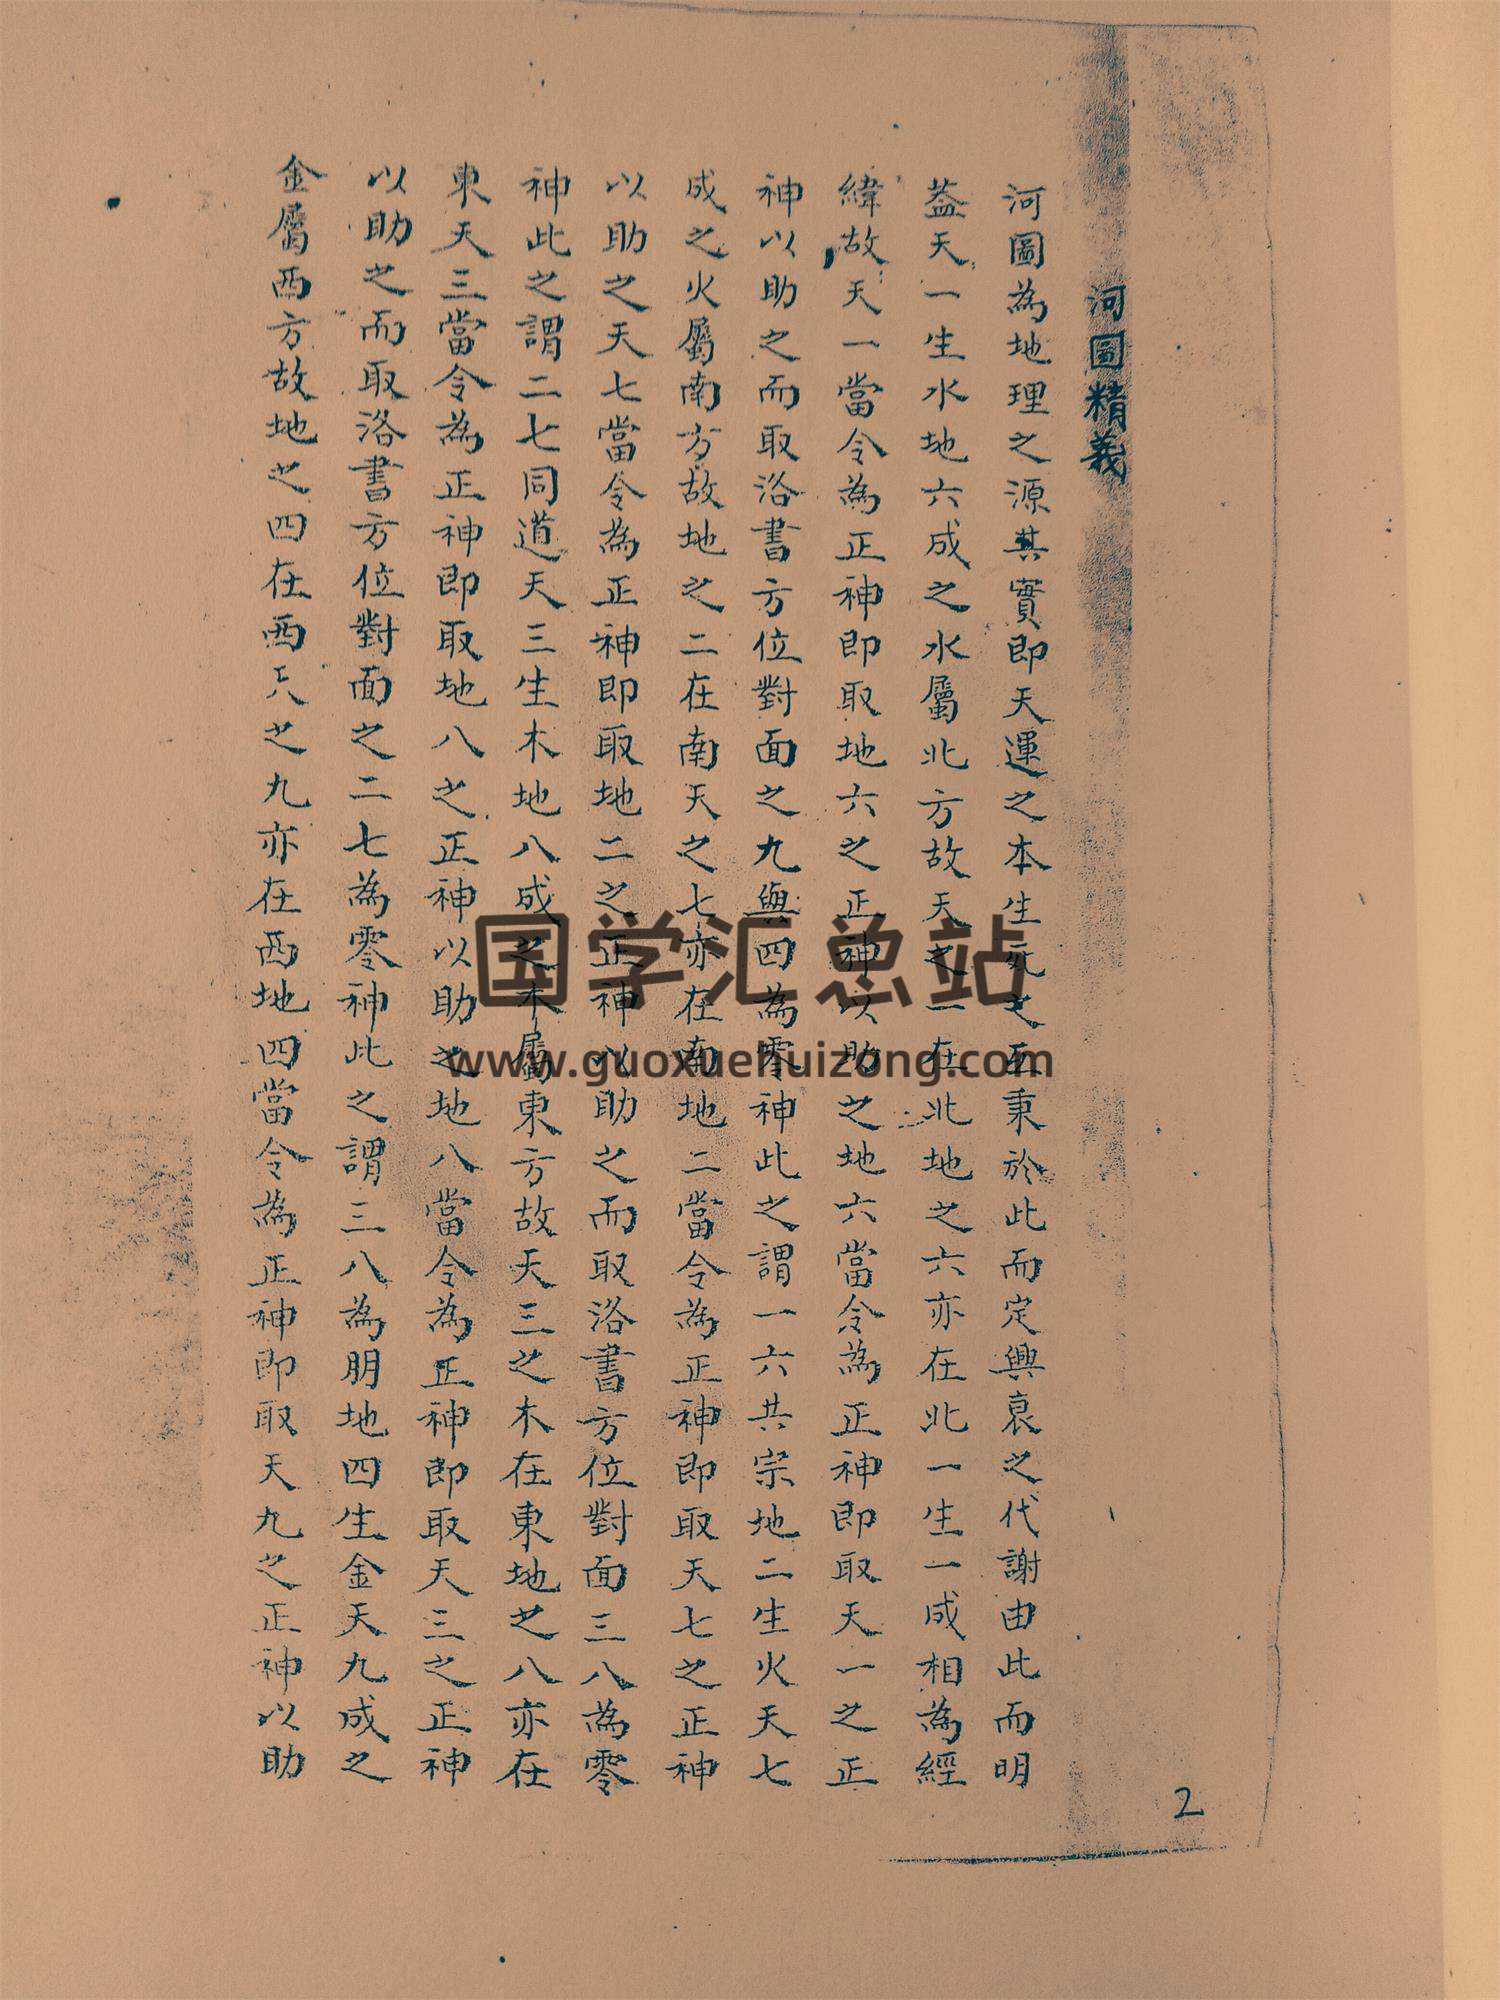 河圖精義
河圖為地理之源其實即天運之本生死之
秉於此而定興衰之代謝由此而明
葢天一生水地六成之水屬北方故天之一在北地之六亦在北一生一成相為經
緯故天一當令為正神即取地六之正神以助之地六當令為正神即取天一之正
神以助之而取洛書方位對面之九與四為零神此之謂一六共宗地二生火天七
成之火屬南方故地之二在南天之七亦在南地二當令為正神即取天七之正神
以助之天七當令為正神即取地二之正神以助之而取洛書方位對面三八為零
神此之謂二七同道天三生木地八成之木屬東方故天三之木在東地之八亦在
東天三當令為正神即取地八之正神以助之地八當令為正神即取天三之正神
以助之而取洛書方位對面之二七為零神此之謂三八為朋地四生金天九成之
金屬西方故地之四在西天之九亦在西地四當令為正神即取天九之正神以助
2
国学汇总站
www.guoxuehuizong.com